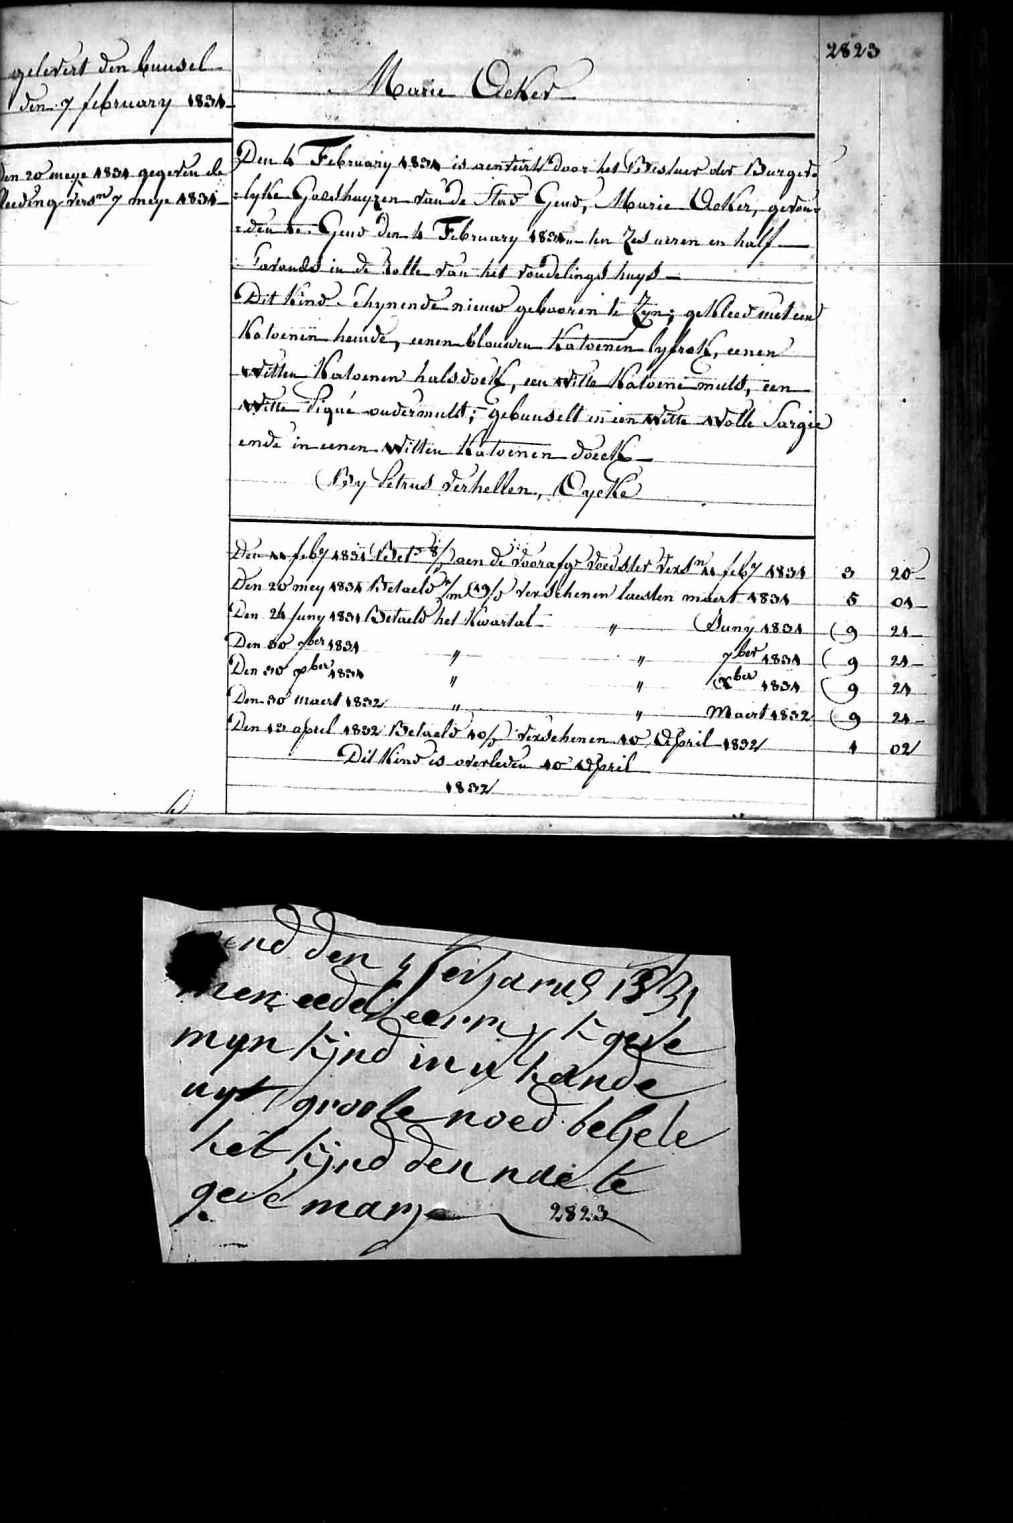 2823
gelevert den buusel
den 7 february 1831
Marie Acker
den 20 meye 1831 gegeven de
kleeding vers.n 7 meye 1831
Den 4 February 1831 is aenveirt door het Bestuer der Burger-
-lyke Godshuyzen van de Stad Gend, Marie Acker, gevon-
-den te Gend den 4 February 1831 ten zes uren en half
's avonds in de Rolle van het vondelingshuys
Dit Kind schynende nieuw gebooren te Zyn; gekleed met een
Katoenen hemde, eenen blouwen Katoenen lyfrok, eenen
Witten Katoenen halsdoek, een Witte Katoene muts, een
Witte Piqué ondermuts; gebunselt in een Witte Wolle Sargie
ende in eenen Witten Katoenen doeck
By Petrus Verhellen, Eycke
Den 11 feb.y 1831 Bet. 8/ aen de voorafg. voedster vers.n 11 feb.y 1831 3 20
Den 20 mey 1831 Betaeld 1/m 19/ verschenen laesten maert 1831 5 01
Den 24 juny 1831 Betaeld het Kwartal " Juny 1831 9 21
Den 30 7ber 1831 " " 7ber 1831 9 21
Den 30 xber 1831 " " xber 1831 9 21
Den 30 maert 1832 " " Maert 1832 9 21
Den 13 april 1832 Betaeld 10/ verschenen 10 April 1832 1 02
Dit Kind is overleden 10 April
1832
gend den 4 feibaruj 1831
men eedel eerrn k geve
myn kjnd in u hande
uyt groote noed beljete
het kjnd den naete
geve marje
2823